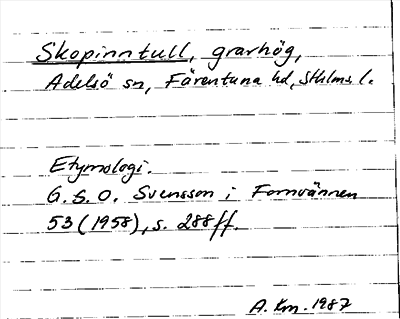 Skopinntull, gravhög,
Adelsö sn, Färentuna hd, Sthlms l.
Etymologi.
G. S. O. Svensson i Fornvännen
53 (1958), s. 288 ff.
A. Km. 1987